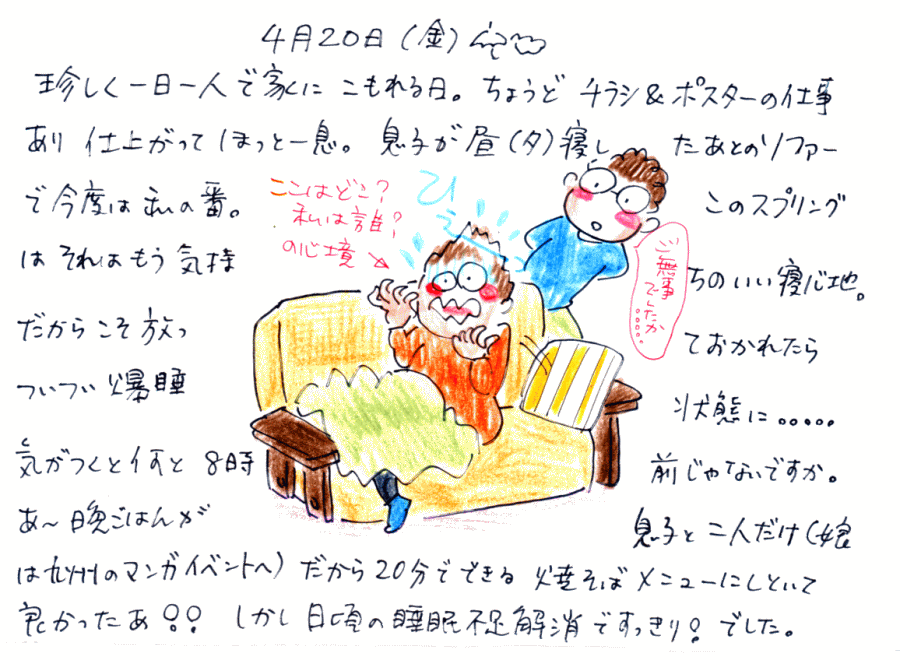 4月20日（金）
珍しく一日一人で家にこもれる日。ちょうどチラシ&ポスターの仕事
あり仕上がってほっと一息。息子が昼（夕）寝し たあとのソファー
で今度は私の番。 このスプリング
はそれはもう気持 ちのいい寝心地。
だからこそ放っ ておかれたら
ついつい爆睡 状態に.....
気がつくと何と8時 前じゃないですか。
あ〜晩ごはんが 息子と二人だけ（娘
は九州のマンガイベントへ）だから20分でできる焼そばメニューにしといて
良かったあ!! しかし日頃の睡眠不足解消ですっきり!でした。
ここはどこ?
私は誰?
の心境
ひえ
ご無事
でしたか.....